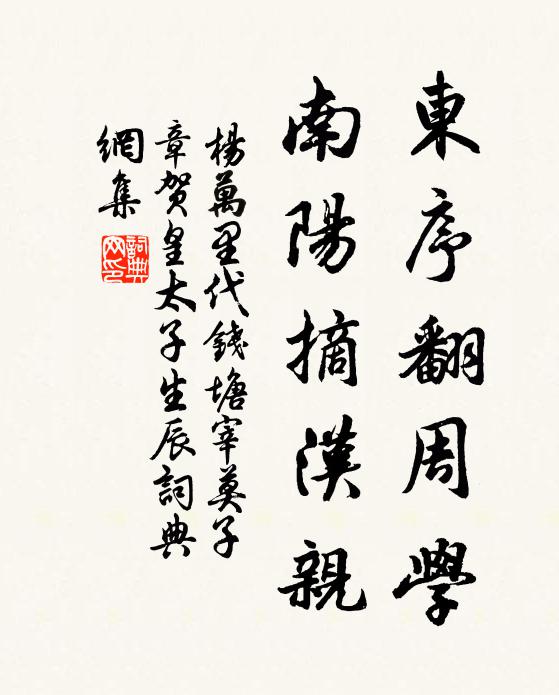 東序翻周學
南陽摘漢親
楊萬里代錢塘宰莫子
章賀皇太子生辰詞典
網集
詞典網印